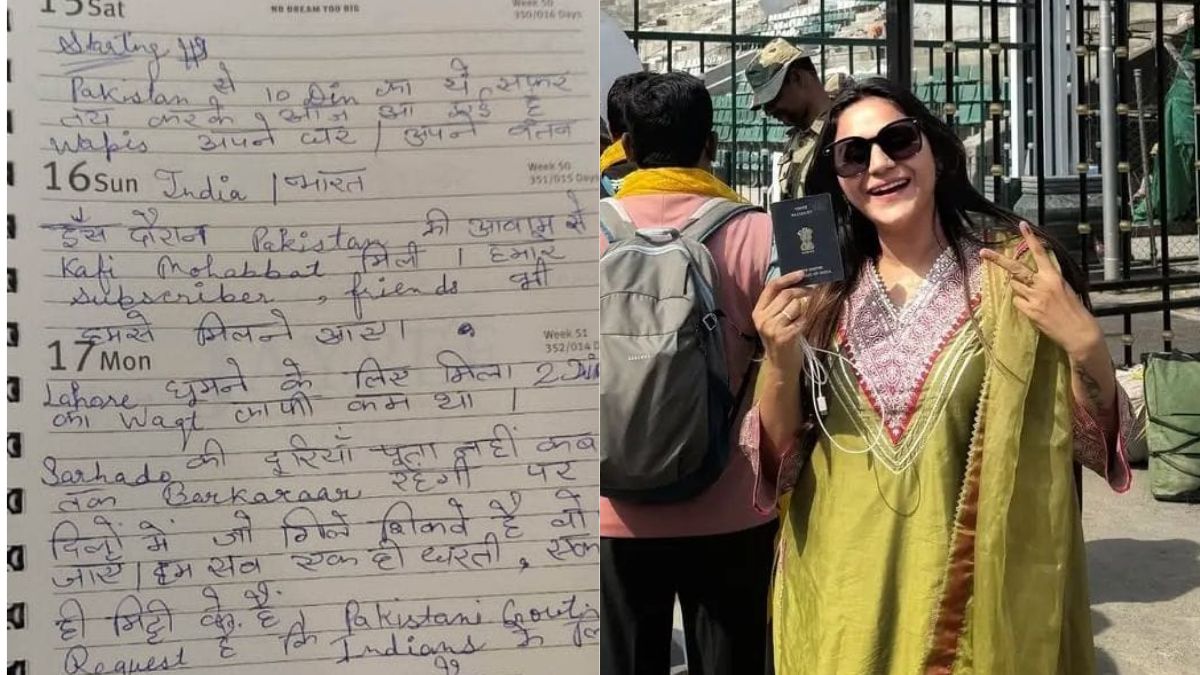 15 Sat
NO DREAM TOO BIG
Week 50
350/016 Days
Starting
Pakistan से 10 Din का ये सफर
तय करके आज आ गई है
Wapis अपने घर / अपने वतन
16 Sun
India / भारत
Week 50
351/015 Days
इस दौरान Pakistan की आवाम से
Kafi Mohabbat मिली । हमारे
subscriber, friends भी
हमसे मिलने आए।
17 Mon
Week 51
352/014 D
Lahore घूमने के लिए मिला 2 Din
का Waqt काफी कम था ।
Sarhado की दूरियाँ पता नहीं कब
तक Barkaraar रहेगी पर
दिलों में जो गिले शिकवे है वो
जाए। हम सब एक ही धरती, एक
ही मिट्टी के है। Pakistani Govt
Request है कि Indians के
PASSPORT